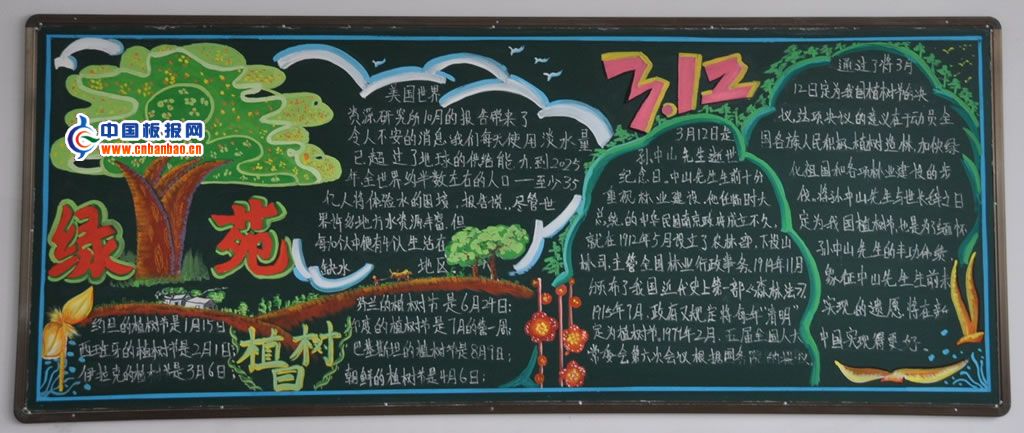 中国板报网
www.cnbanbao.cn
绿苑
美国世界
资源研究所10月的报告带来了
令人不安的消息:我们每天使用淡水量
已超过了地球的供给能力到2025
年,全世界约半数左右的人口——至少35
亿人将体验水的困境,报告说,尽管世
界
地力水资源丰富,但
每10人中便有4人生活在
缺水 地区
约旦的植树节是1月15日
西班牙的植树节是2月1日;
伊拉克的植树节是3月6日;
植树
芬兰的植树节是6月24日;
印度的植树节是7月的第一周;
巴基斯坦的植树节是8月1日;
朝鲜的植树节是4月6日;
3.12
3月12日是
孙中山先生逝世
纪念日。中山先生生前十分
重视林业建设。他任临时大
总统的中华民国南京政府成立不久,
就在1912年5月设立了农林部,下设山
林司,主管全国林业行政事务,1914年11月
颁布了我国近代史上第一部《森林法》
1915年7月,政府又规定将每年"清明"
定为植树节,1979年2月,五届全国人大
常委会第六次会议根据国务院
通过了将3月
12日定为我国植树节的决
议,这项决议的意义在于动员全
国各族人民积极植树造林,加快绿
化祖国和各项林业建设的步
伐,将孙中山先生与世长辞之日
定为我国植树节,也是为了缅怀
孙中山先生的丰功伟绩,
象征中山先生生前未
实现的遗愿将在新
中国实现